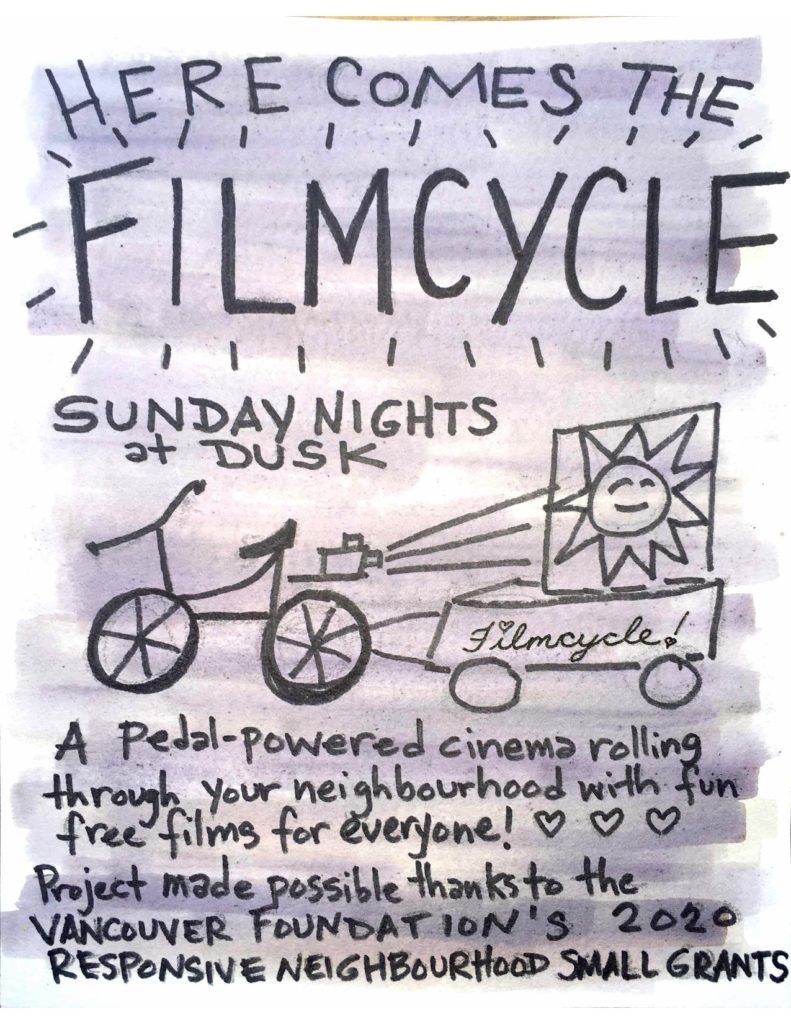 HERE COMES THE
FILMCYCLE
SUNDAY NIGHTS
at DUSK
Filmcycle!
A Pedal-powered cinema rolling
through your neighbourhood with fun
free films for everyone! ♡ ♡ ♡
Project made possible thanks to the
VANCOUVER FOUNDATION'S 2020
RESPONSIVE NEIGHBOURHOOD SMALL GRANTS